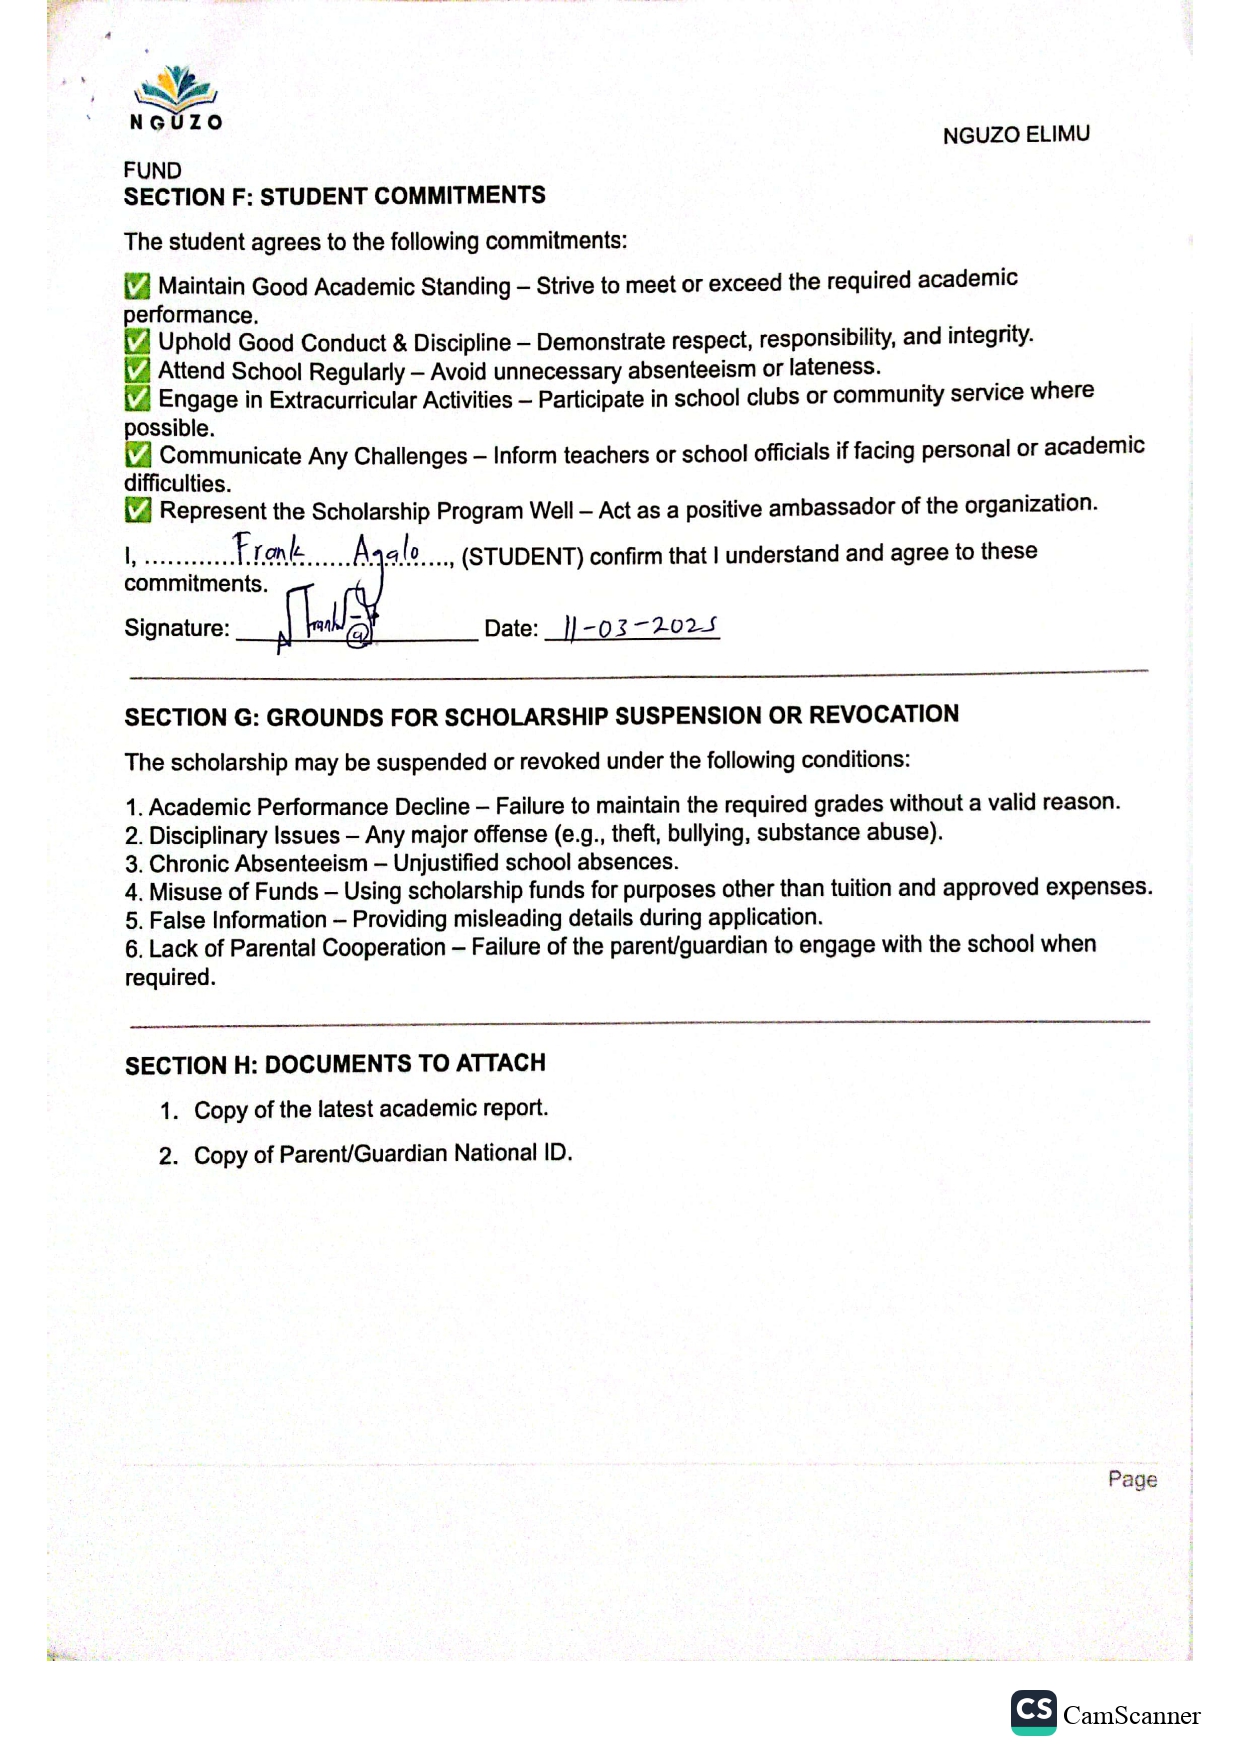 NGUZO
NGUZO ELIMU
FUND
SECTION F: STUDENT COMMITMENTS
The student agrees to the following commitments:
✅ Maintain Good Academic Standing – Strive to meet or exceed the required academic
performance.
✅ Uphold Good Conduct & Discipline – Demonstrate respect, responsibility, and integrity.
✅ Attend School Regularly – Avoid unnecessary absenteeism or lateness.
✅ Engage in Extracurricular Activities – Participate in school clubs or community service where
possible.
✅ Communicate Any Challenges – Inform teachers or school officials if facing personal or academic
difficulties.
✅ Represent the Scholarship Program Well – Act as a positive ambassador of the organization.
I, ............Frank.....Agalo....., (STUDENT) confirm that I understand and agree to these
commitments.
Signature: Frank Date: 11-03-2025
SECTION G: GROUNDS FOR SCHOLARSHIP SUSPENSION OR REVOCATION
The scholarship may be suspended or revoked under the following conditions:
1. Academic Performance Decline – Failure to maintain the required grades without a valid reason.
2. Disciplinary Issues – Any major offense (e.g., theft, bullying, substance abuse).
3. Chronic Absenteeism – Unjustified school absences.
4. Misuse of Funds – Using scholarship funds for purposes other than tuition and approved expenses.
5. False Information – Providing misleading details during application.
6. Lack of Parental Cooperation – Failure of the parent/guardian to engage with the school when
required.
SECTION H: DOCUMENTS TO ATTACH
1. Copy of the latest academic report.
2. Copy of Parent/Guardian National ID.
Page
CS CamScanner